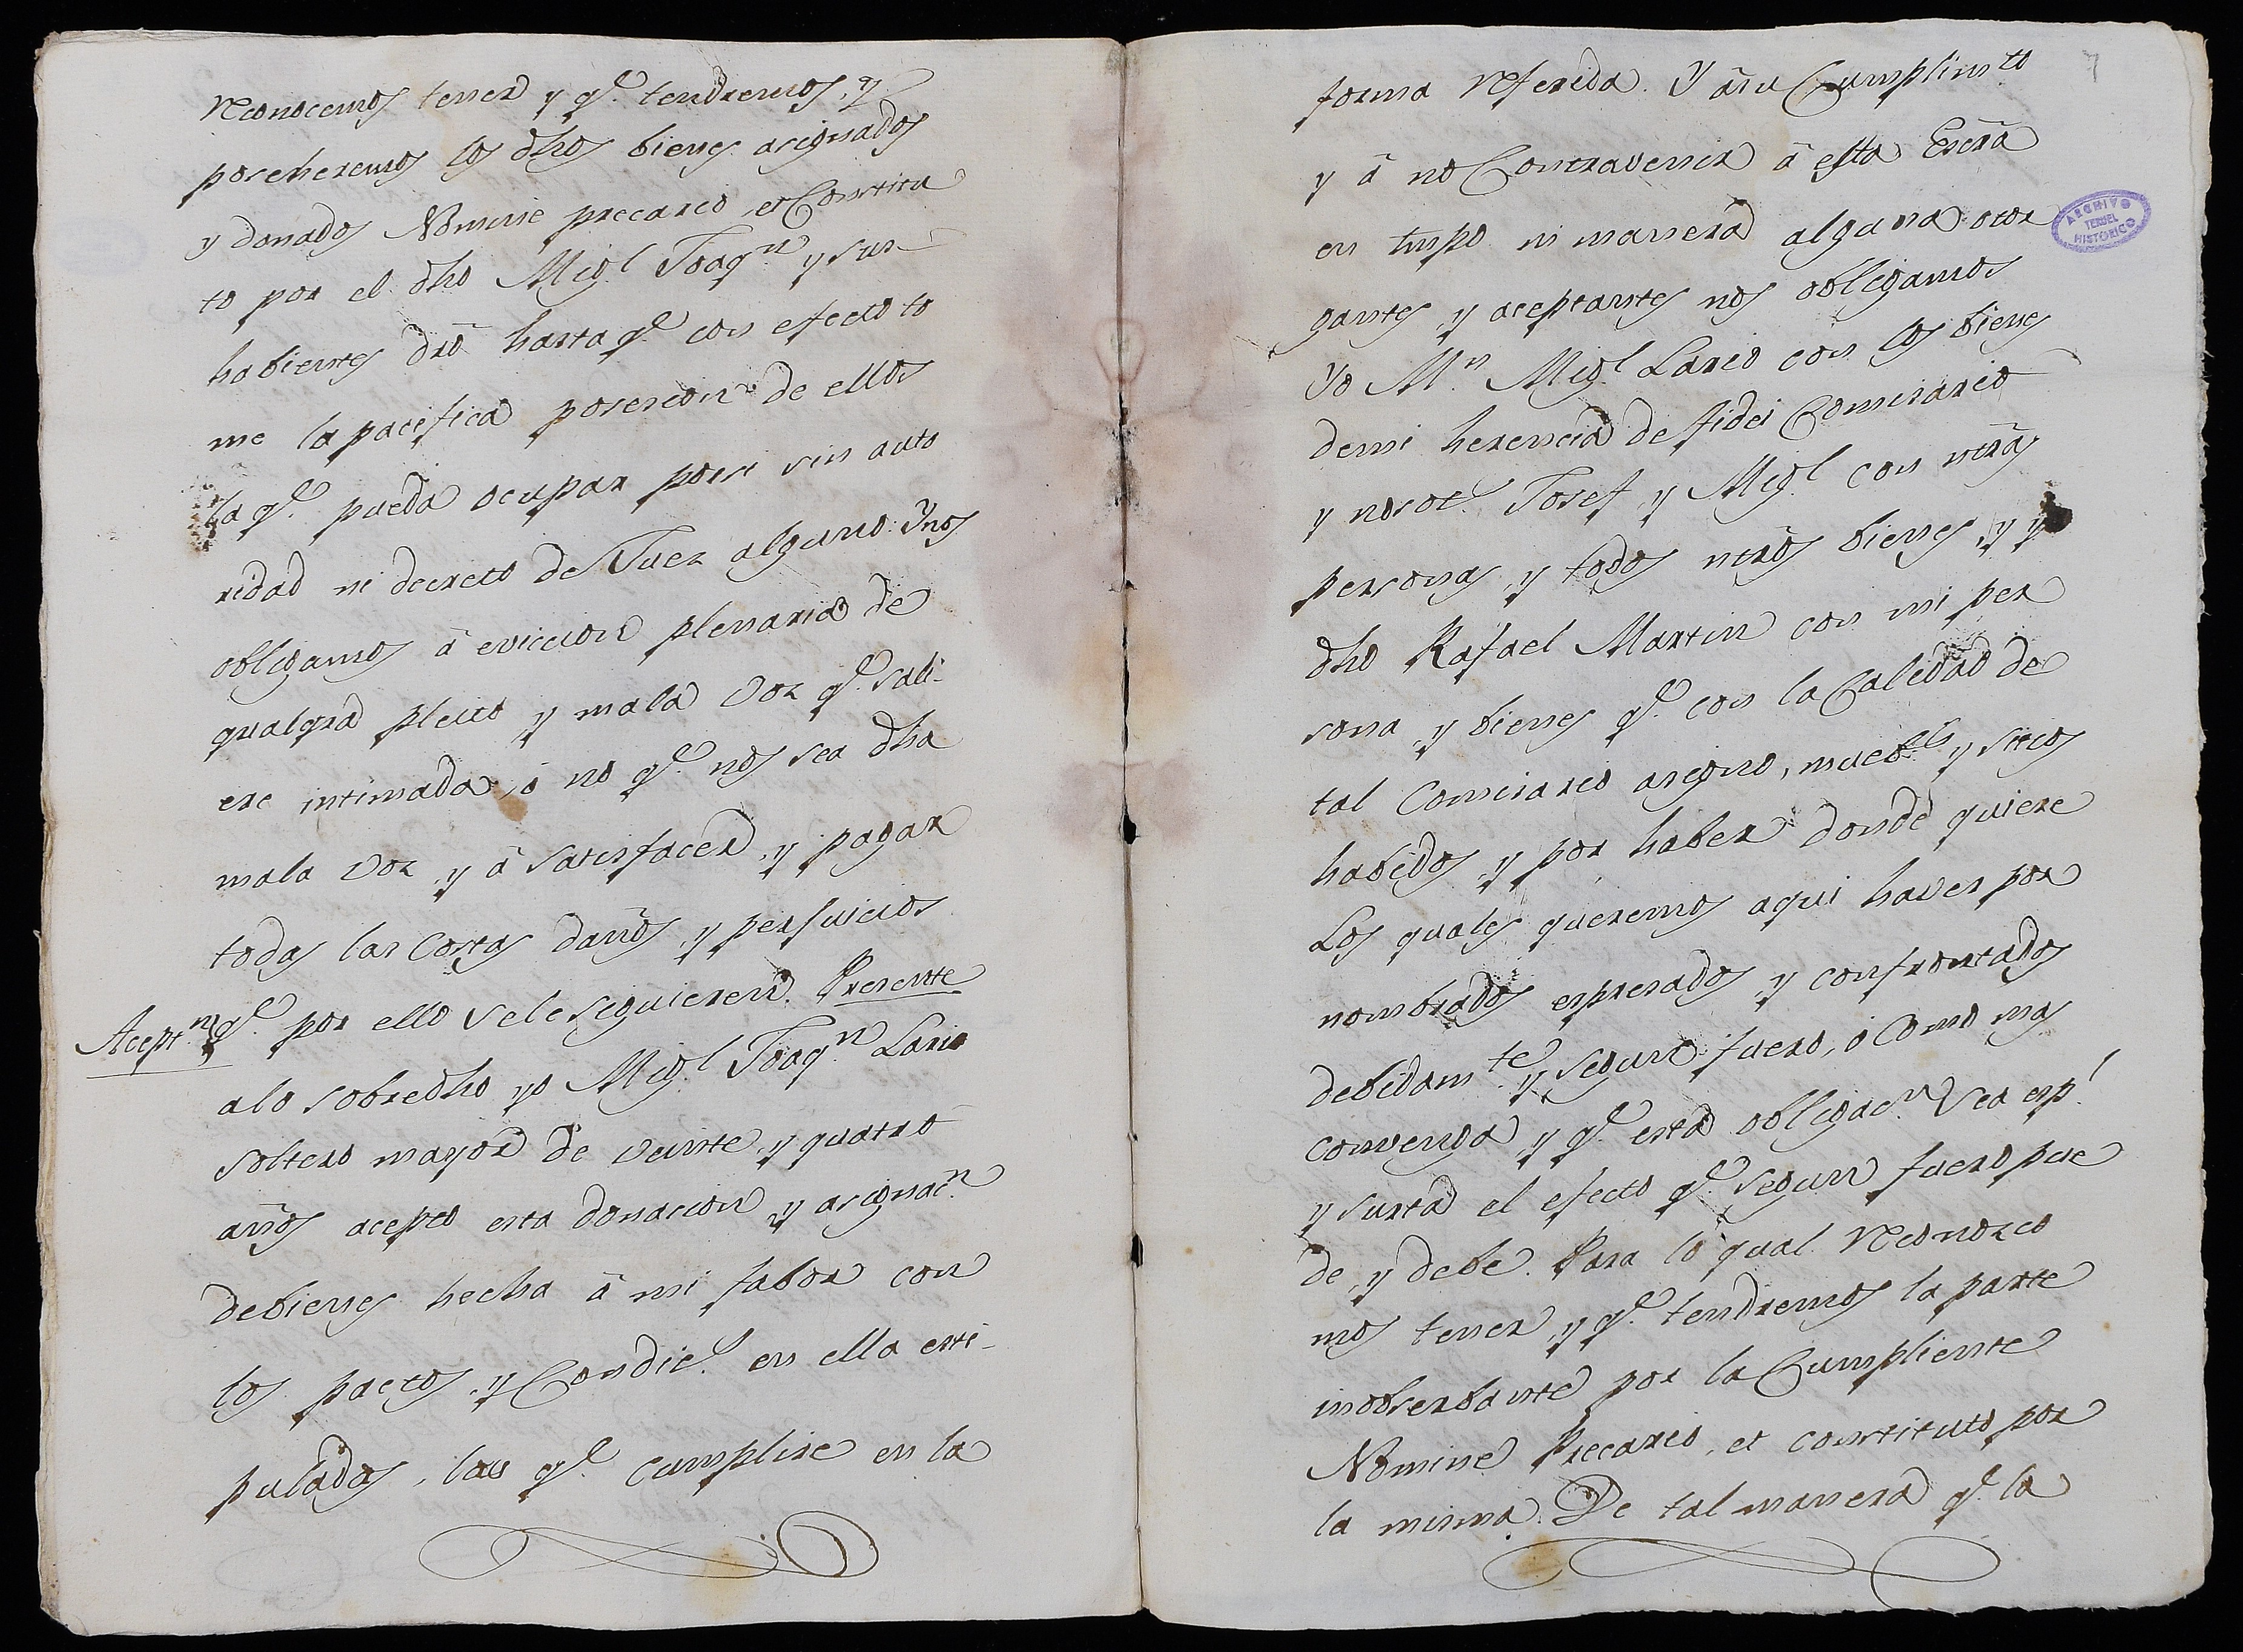 reconocemos tener y q.e tendremos, y
poseheremos los dhos bienes asignados
y donados Nomine precario et Constitu
to por el dho Mig.l Joaq.n y sus
habientes dro hasta q.e con efecto to
me la pacifica posesion de ellos
la q.e pueda ocupar por si sin auto
ridad ni decreto de Juez alguno Y nos
obligamos â eviccion plenaria de
qualqra pleito y mala voz q.e sali-
ere intimada, ó no q.e nos sea dha
mala voz y â satisfacer, y pagar
todas las costas daños, y perjuicios
Acept.n q.e por ello se le siguieren. Presente
a lo sobredho yo Mig.l Joaq.n Lario
soltero mayor de veinte, y quatro
años acepto esta donacion y asignac.n
de bienes hecha â mi fabor con
los pactos, y Condic.s en ella esti-
pulados, las q.e cumplire en la
7
forma referida. Y â su Cumplim.to
y â no Contravenir â esta Escrâ
en tmpo ni manera alguna otor
gantes, y aceptantes nos obligamos
Yo M.n Mig.l Lario con los bienes
de mi herencia de fidei Comisario
y nosot.s Josef, y Mig.l con ntrâs
personas, y todos ntros bienes, y yo
dho Rafael Martin con mi per
sona, y bienes q.e con la Calidad de
tal Comisario asigno, mueb.les y sitios
habidos, y por haber donde quiere
Los quales queremos aqui haver por
nombrados espresados, y confrontados
debidam.te y segun fuero, ó como mas
convenga, y q.e esta obligac.n sea esp.l
y surta el efecto q.e segun fuero pue
de, y debe. Para lo qual reconozco
mos tener, y q.e tendremos la parte
inobserbante por la Cumpliente
Nomine Precario, et constituto por
la misma. De tal manera q.e la
ARCHIVO
TERUEL
HISTORICO